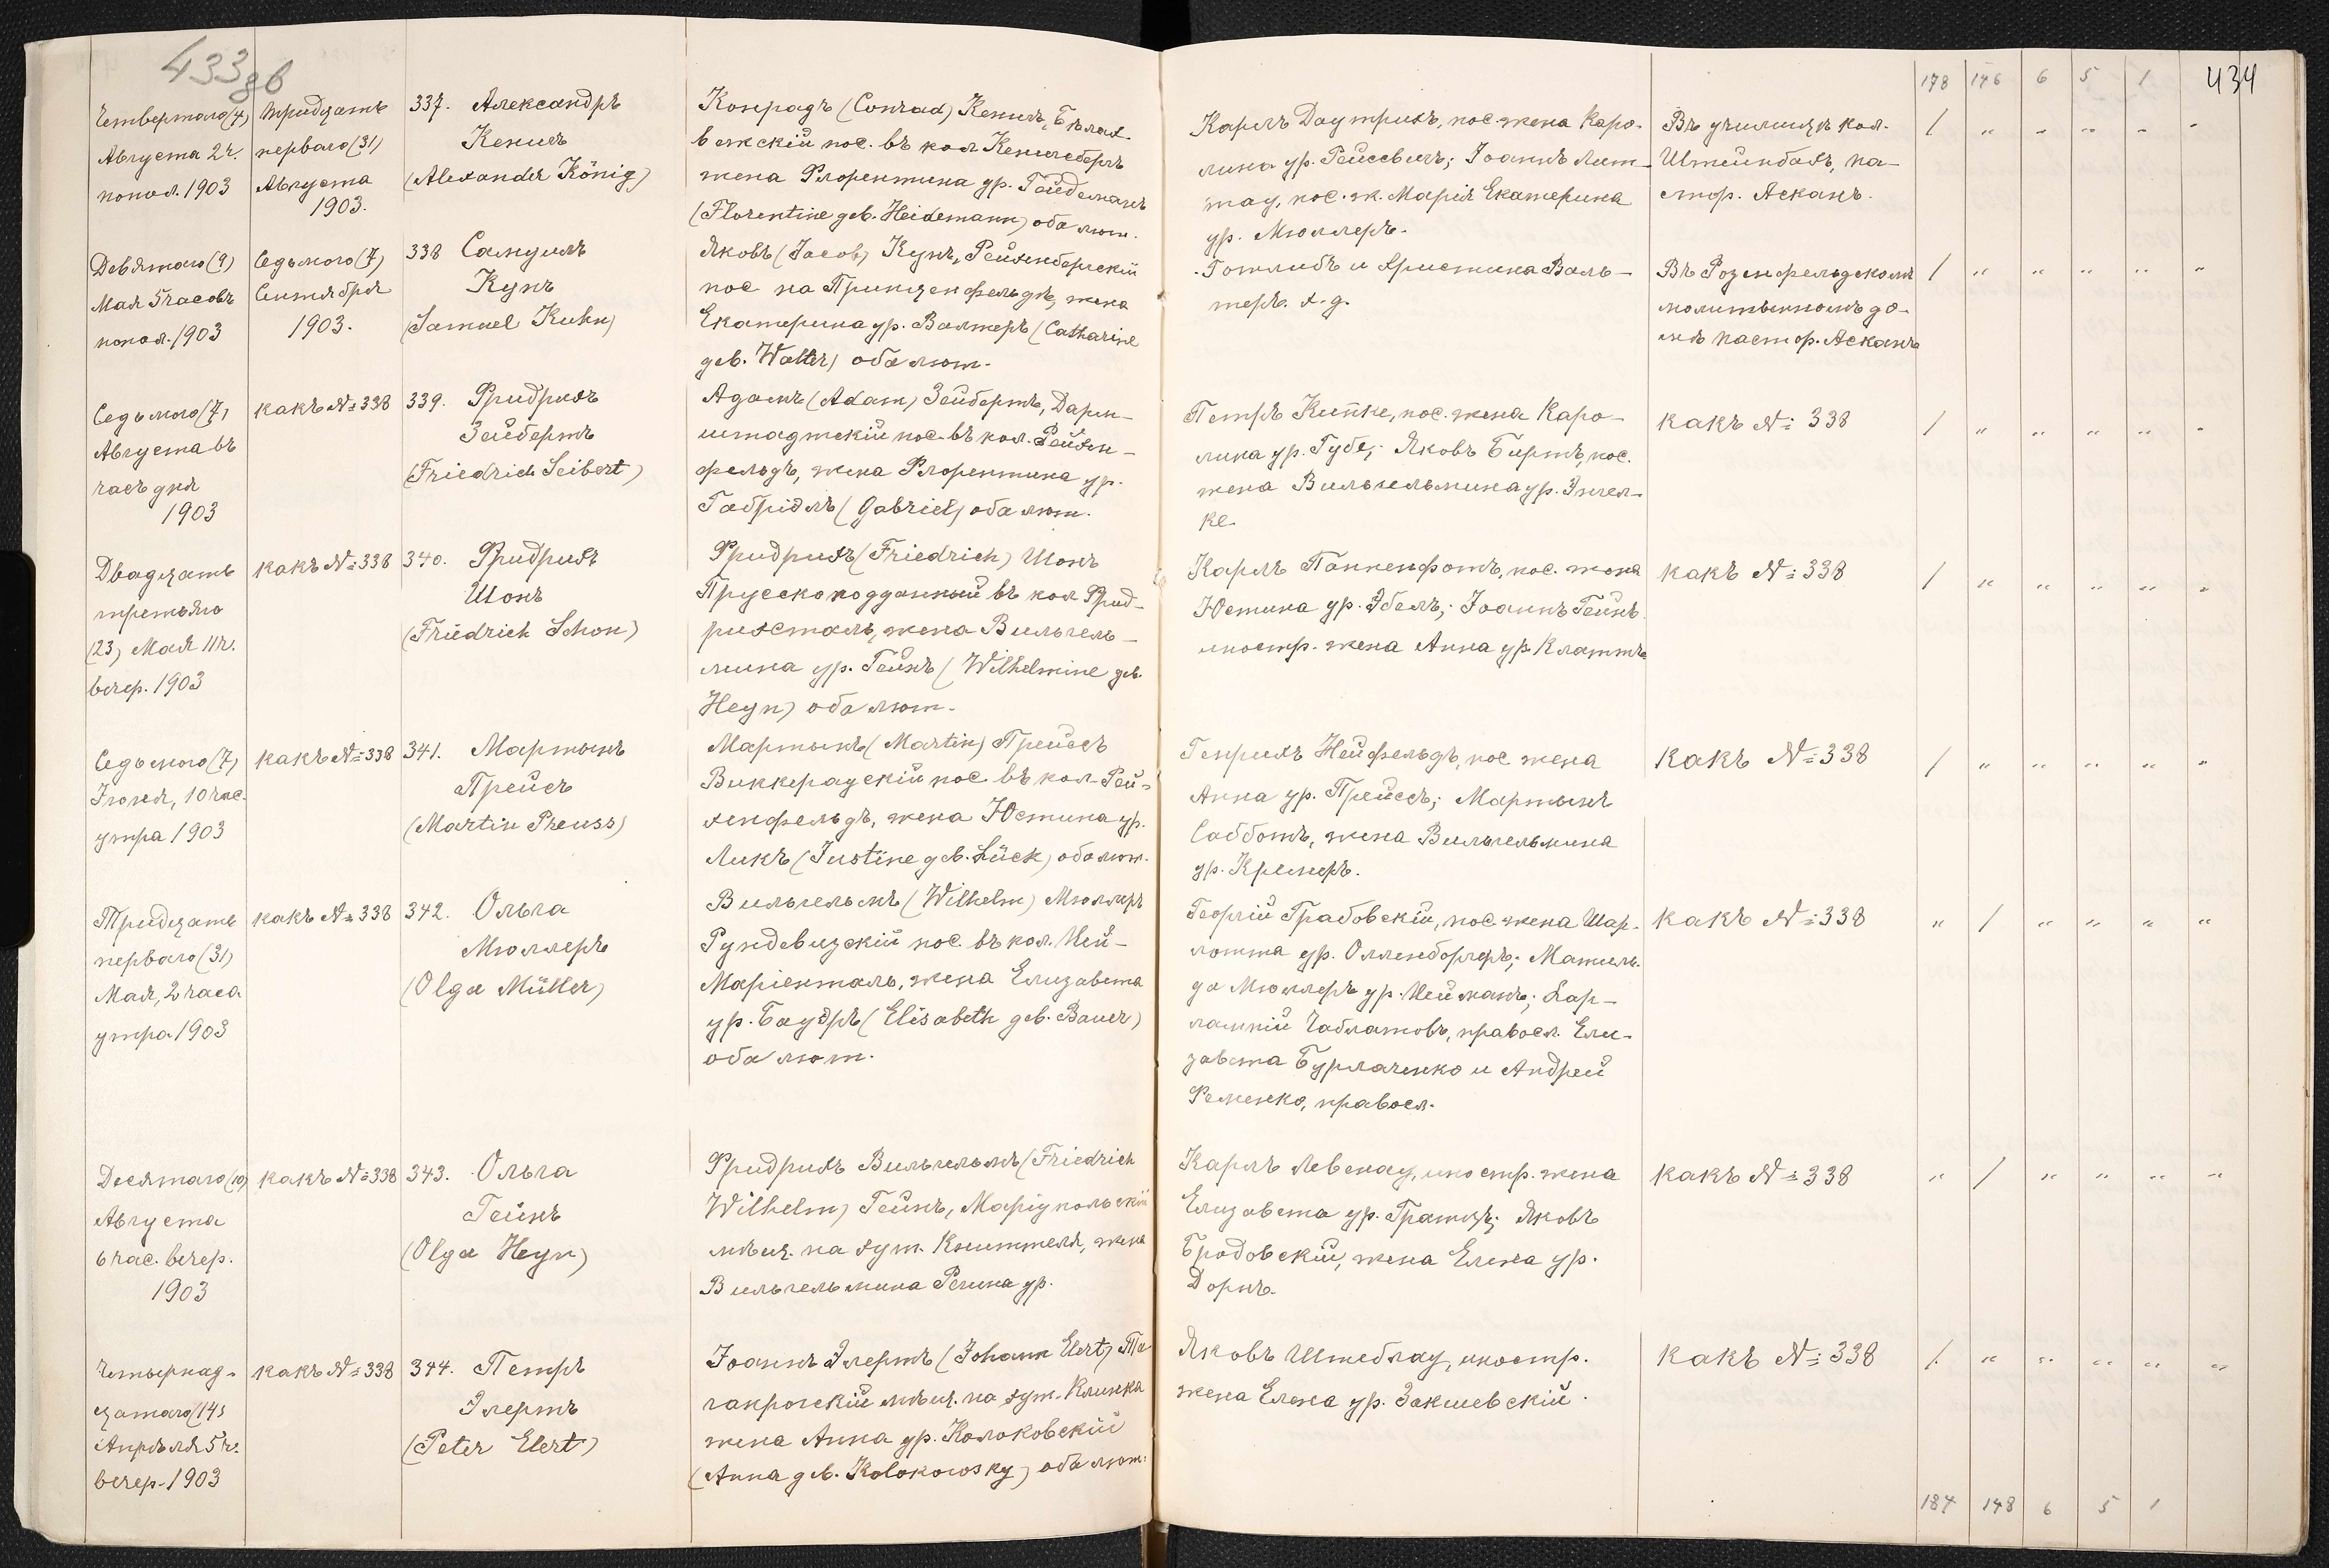 433 об
178 146 6 5 1 434
Четвертаго (4)
Августа 2 ч.
попол. 1903
Тридцать
перваго (31)
Августа
1903.
337. Александръ
Кенигъ
(Alexander König)
Конрадъ (Conrad) Кенигъ, Бѣлов-
вежскій пос. въ кол. Кенигсбергъ
жена Флорентина ур. Гайдеманъ
(Florentine geb. Heidemann) оба лют.
Карлъ Даутрихъ, пос. жена Каро-
лина ур. Рейсвигъ; Іоаннъ Лит-
тау, пос. ж. Марія Екатерина
ур. Мюллеръ.
Въ училищѣ кол.
Штейнбахъ, па-
стор. Асканъ.
/ " " " " "
Девятаго (9)
Мая 5 часовъ
попол. 1903
Седьмого (7)
Сентября
1903.
338 Самуилъ
Кунъ
(Samuel Kuhn)
Яковъ (Jacob) Кунъ, Рейхенбергскій
пос. на Принценфельдѣ, жена
Екатерина ур. Валтеръ (Catharine
geb. Walter) оба лют.
Готлибъ и Христина Валь-
теръ. х. д.
Въ Розенфельдскомъ
молитвенномъ до-
мѣ пастор. Асканъ
/ " " " " "
Седьмого (7)
Августа въ
часъ дня
1903
какъ № 338
339. Фридрихъ
Зейбертъ
(Friedrich Seibert)
Адамъ (Adam) Зейбертъ, Дарм-
штадтскій пос. въ кол. Рейхен-
фельдъ, жена Флорентина ур.
Габріэлъ (Gabriel) оба лют.
Петръ Кипке, пос. жена Каро-
лина ур. Губе; Яковъ Биртъ, пос.
жена Вильгельмина ур. Энгел-
ке.
какъ № 338
/ " " " " "
Двадцать
третьяго
(23) Мая 11 ч.
вечер. 1903
какъ № 338
340. Фридрихъ
Шонъ
(Friedrich Schon)
Фридрихъ (Friedrich) Шонъ
Прусскоподданный въ кол. Фрид-
рихсталь, жена Вильгель-
мина ур. Гейнъ (Wilhelmine geb.
Heyn) оба лют.
Карлъ Панненфотъ, пос. жена
Юстина ур. Эбелъ; Іоаннъ Гейнъ
иностр. жена Анна ур. Клаттъ
какъ № 338
/ " " " " "
Седьмого (7)
Іюня, 10 час.
утра 1903
какъ № 338
341. Мартынъ
Прейсъ
(Martin Preuss)
Мартынъ (Martin) Прейсъ
Виккераускій пос. въ кол. Рей-
хенфельдъ, жена Юстина ур.
Ликъ (Justine geb. Lück) оба лют.
Генрихъ Нейфельдъ, пос. жена
Анна ур. Прейсъ; Мартынъ
Сабботъ, жена Вильгельмина
ур. Кремеръ.
какъ № 338
/ " " " " "
Тридцать
перваго (31)
Мая, 2 часа
утра 1903
какъ № 338
342. Ольга
Мюллеръ
(Olga Müller)
Вильгельмъ (Wilhelm) Мюллеръ
Рундевизскій пос. въ кол. Ней-
Маріенталь, жена Елизавета
ур. Бауэръ (Elisabeth geb. Bauer)
оба лют.
Георгій Грабовскій, пос. жена Шар-
лотта ур. Олленбергеръ; Матиль-
да Мюллеръ ур. Нейманъ; Хар-
лампій Чаблатовъ, правосл. Ели-
завета Бурлаченко и Андрей
Ременко, правосл.
какъ № 338
" / " " " "
Десятаго (10)
Августа
6 час. вечер.
1903
какъ № 338
343. Ольга
Гейнъ
(Olga Heyn)
Фридрихъ Вильгельмъ (Friedrich
Wilhelm) Гейнъ, Маріупольскій
мѣщ. на хут. Книттеля, жена
Вильгельмина Регина ур.
Карлъ Левенау, иностр. жена
Елизавета ур. Гратцъ; Яковъ
Бродовскій, жена Елена ур.
Дорнъ.
какъ № 338
" / " " " "
Четырнад-
цатаго (14)
Апрѣля 5 ч.
вечер. 1903
какъ № 338
344. Петръ
Элертъ
(Peter Elert)
Іоаннъ Элертъ (Johann Elert) Та-
ганрогскій мѣщ. на хут. Клинка
жена Анна ур. Колоковскій
(Anna geb. Kolokowsky) оба лют.
Яковъ Штеблау, иностр.
жена Елена ур. Закшевскій.
какъ № 338
/ " " " " "
184 148 6 5 1